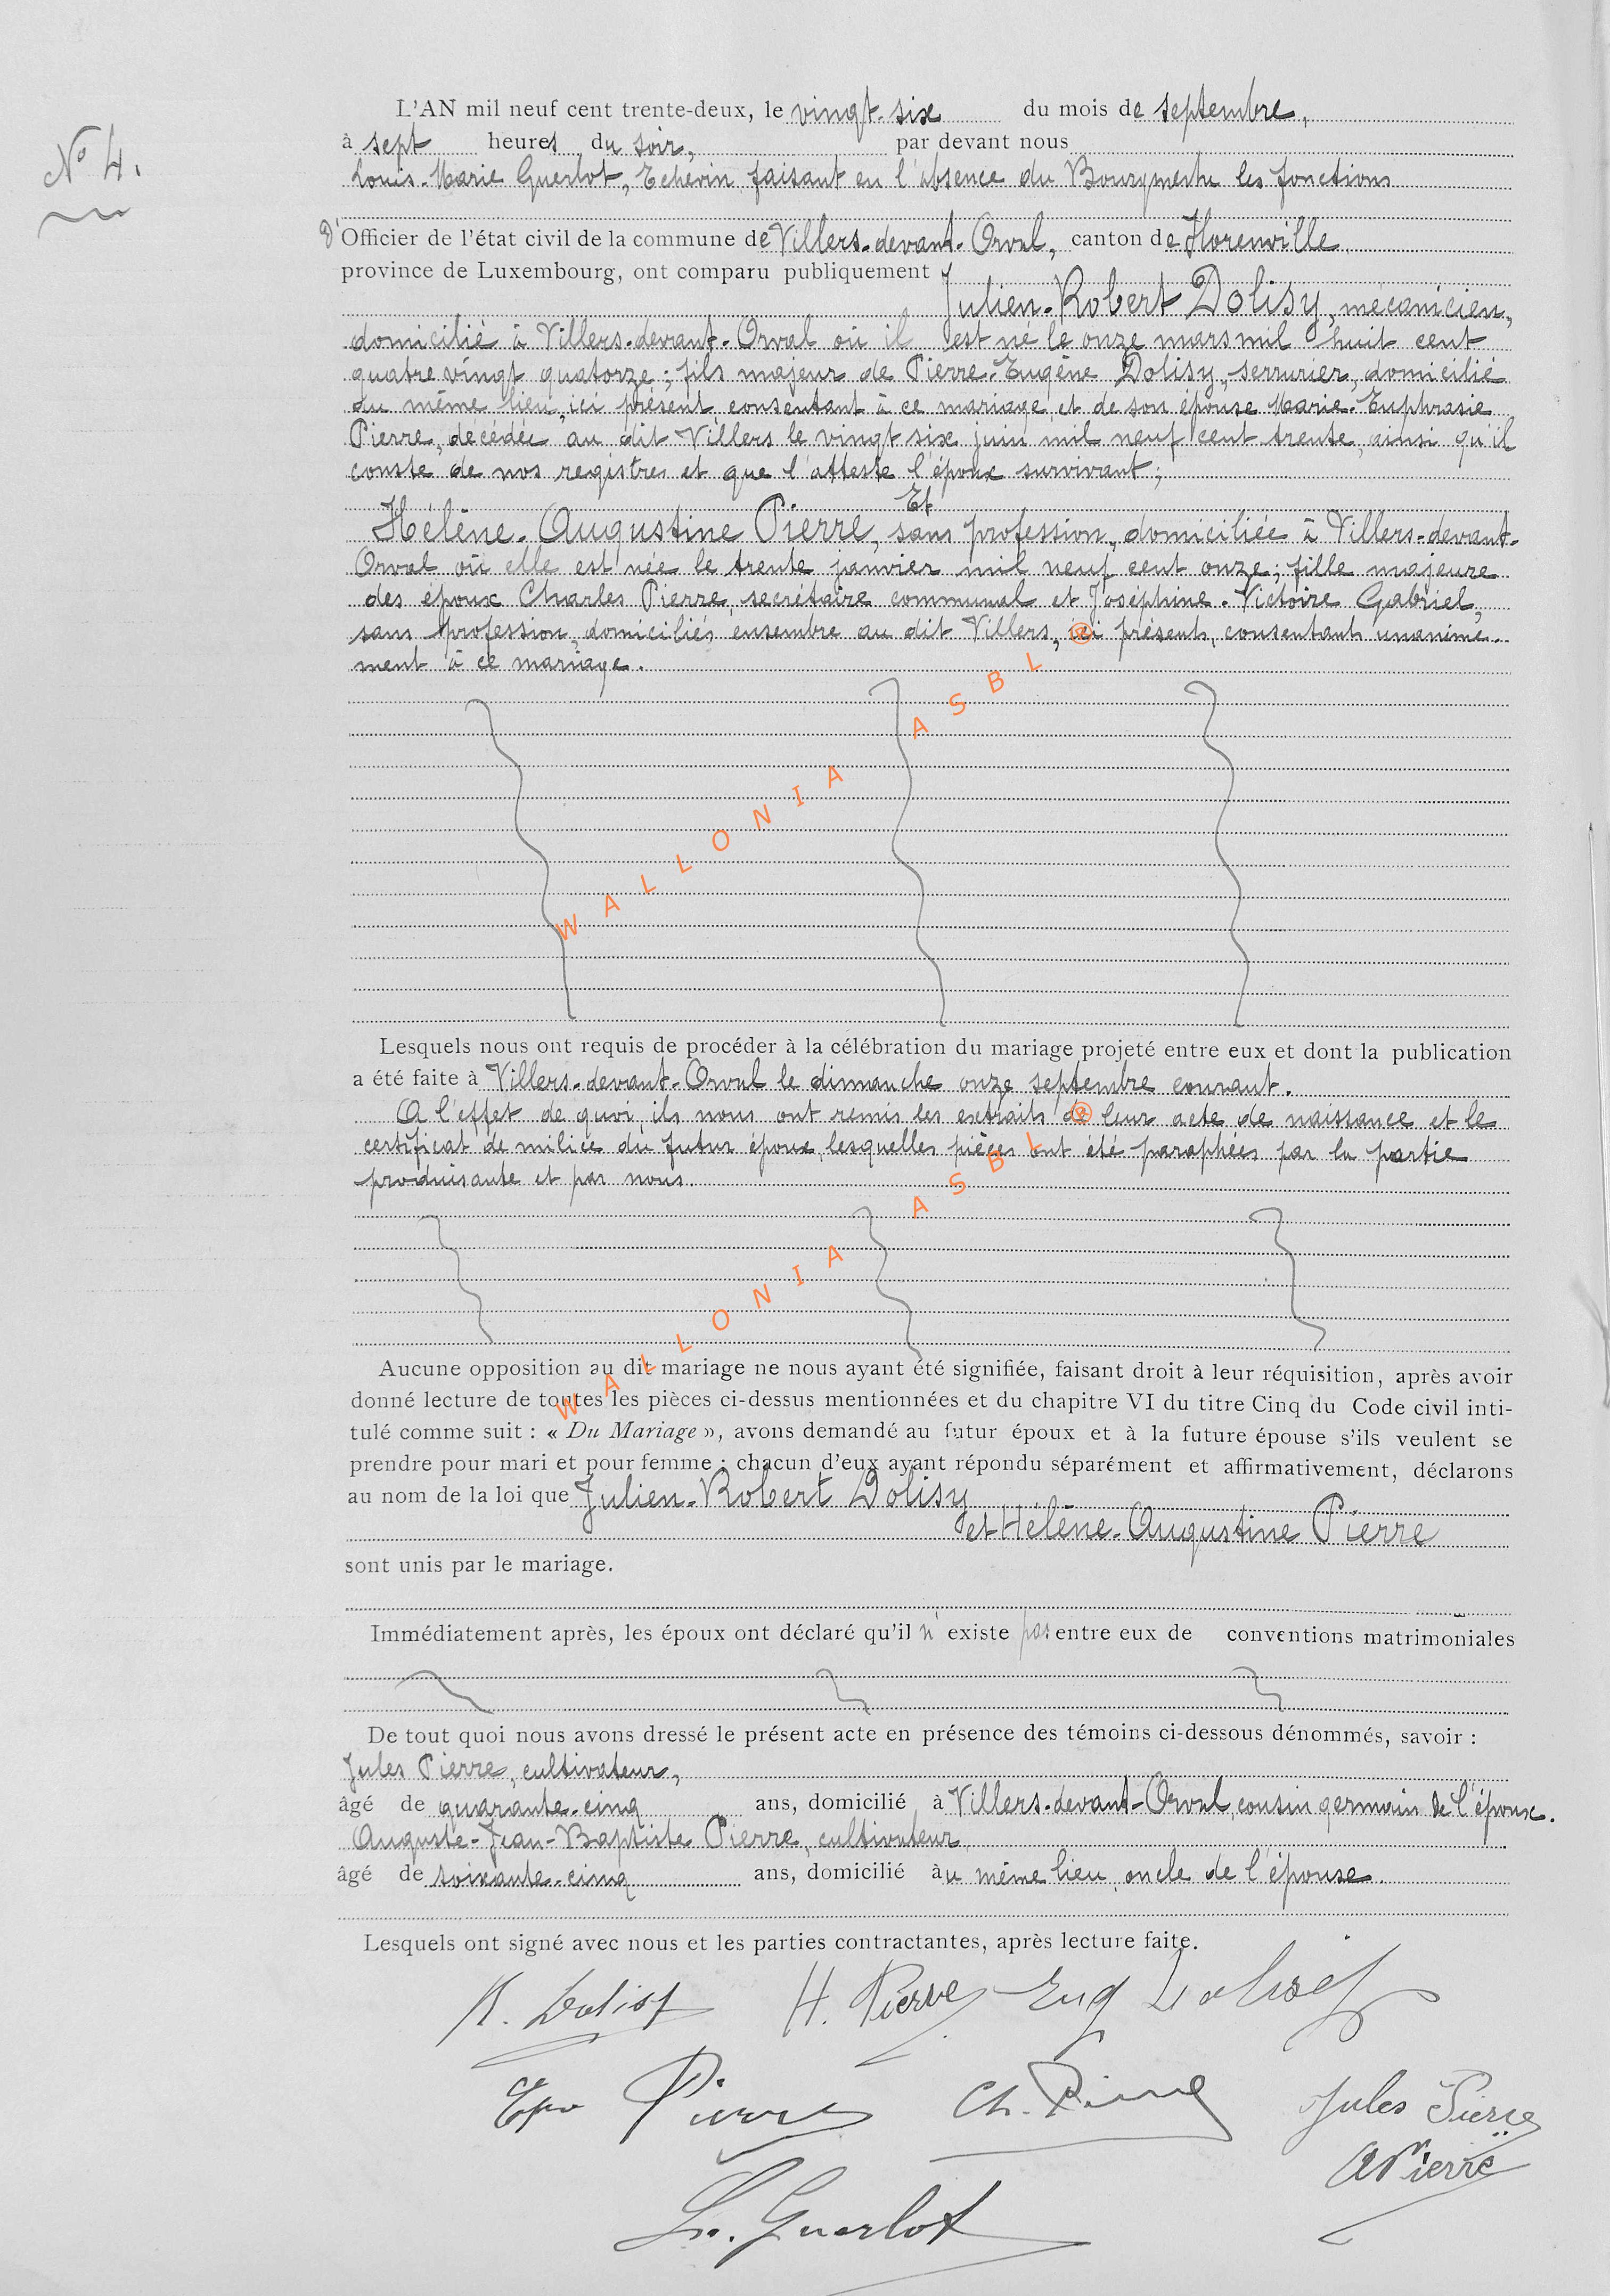 N° 4.
L'AN mil neuf cent trente-deux, le vingt-six du mois de septembre,
à sept heures du soir, par devant nous
Louis-Marie Guerlot, Echevin faisant en l'absence du Bourgmestre les fonctions
d'Officier de l'état civil de la commune de Villers-devant-Orval, canton de Florenville
province de Luxembourg, ont comparu publiquement
Julien-Robert Dolisy, mécanicien,
domicilié à Villers-devant-Orval où il est né le onze mars mil huit cent
quatre vingt quatorze; fils majeur de Pierre-Eugène Dolisy, serrurier, domicilié
au même lieu, ici présent, consentant à ce mariage et de son épouse Marie-Euphrasie
Pierre, décédée au dit Villers le vingt six juin mil neuf cent trente, ainsi qu'il
conste de nos registres et que l'atteste l'époux survivant;
Et
Hélène-Augustine Pierre, sans profession, domiciliée à Villers-devant-
Orval où elle est née le trente janvier mil neuf cent onze; fille majeure
des époux Charles Pierre, secrétaire communal et Joséphine-Victoire Gabriel,
sans profession, domiciliés ensembre au dit Villers, ici présents, consentants unanime-
ment à ce mariage.
WALLONIA ASBL ®
Lesquels nous ont requis de procéder à la célébration du mariage projeté entre eux et dont la publication
a été faite à Villers-devant-Orval le dimanche onze septembre courant.
A l'effet de quoi ils nous ont remis les extraits de leur acte de naissance et le
certificat de milice du futur époux, lesquelles pièces ont été paraphées par la partie
produisante et par nous.
WALLONIA ASBL ®
Aucune opposition au dit mariage ne nous ayant été signifiée, faisant droit à leur réquisition, après avoir
donné lecture de toutes les pièces ci-dessus mentionnées et du chapitre VI du titre Cinq du Code civil inti-
tulé comme suit : « Du Mariage », avons demandé au futur époux et à la future épouse s'ils veulent se
prendre pour mari et pour femme ; chacun d'eux ayant répondu séparément et affirmativement, déclarons
au nom de la loi que Julien-Robert Dolisy
et Hélène-Augustine Pierre
sont unis par le mariage.
Immédiatement après, les époux ont déclaré qu'il n'existe pas entre eux de conventions matrimoniales
De tout quoi nous avons dressé le présent acte en présence des témoins ci-dessous dénommés, savoir :
Jules Pierre, cultivateur,
âgé de quarante-cinq ans, domicilié à Villers-devant-Orval, cousin germain de l'époux.
Auguste-Jean-Baptiste Pierre, cultivateur
âgé de soixante-cinq ans, domicilié au même lieu, oncle de l'épouse.
Lesquels ont signé avec nous et les parties contractantes, après lecture faite.
R. Dolisy H. Pierre Eug Dolisy
Pierre Ch. Pierre Jules Pierre
A Pierre
L. Guerlot